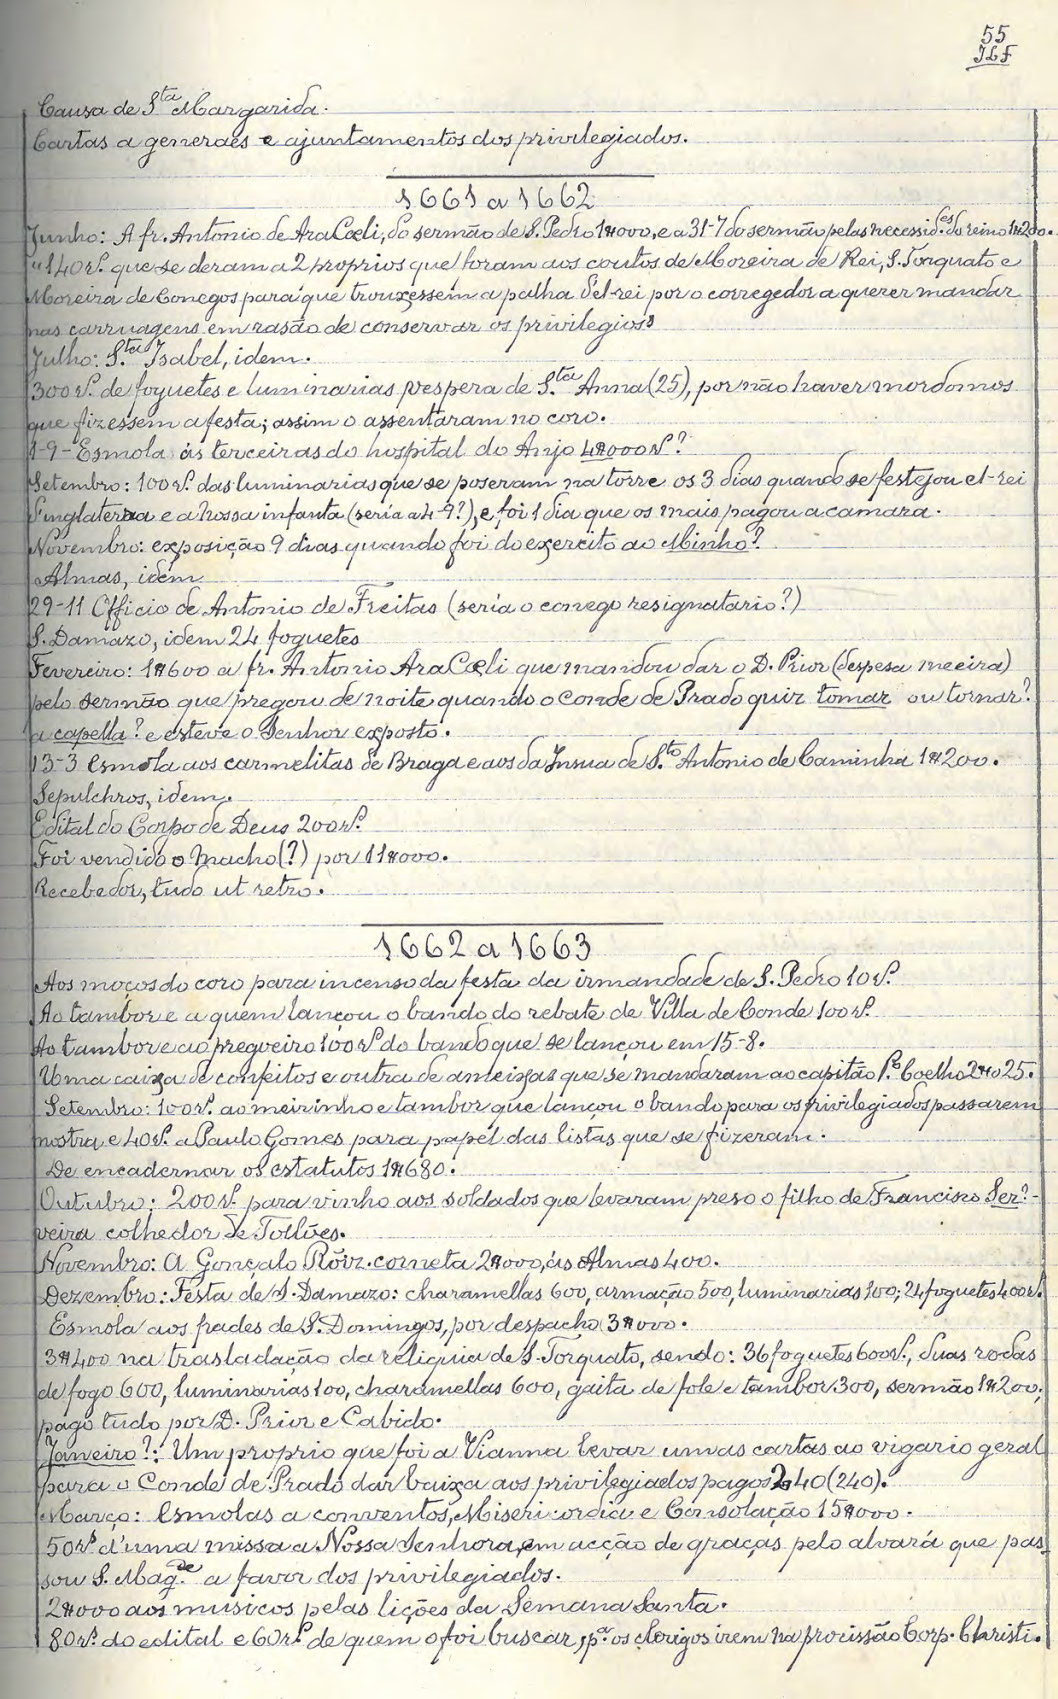 55
JLF
Causa de Sta Margarida.
Cartas a generaes e ajuntamentos dos privilegiados.
1661 a 1662
Junho: A fr. Antonio de AraCœli, do sermão de S. Pedro 1$000, e a 31-7 do sermão pelas necessid.es do reino 1$200.
"140rs. que se deram a 2 proprios que foram aos coutos de Moreira de Rei, S. Torquato e
Moreira de Conegos para que trouxessem a palha d'el-rei por o corregedor a querer mandar
nas carruagens em rasão de conservar os privilegios
Julho: S.ta Isabel, idem.
300rs. de foguetes e luminarias vespera de S.ta Anna (25), por não haver mordomos
que fizessem a festa; assim o assentaram no coro.
1-9- Esmola ás terceiras do hospital do Anjo 4$000rs?
Setembro: 100rs. das luminarias que se poseram na torre os 3 dias quando se festejou el-rei
d'inglaterra e a nossa infanta (seria a 4-9?), e foi 1 dia que os mais pagou a camara.
Novembro: exposição 9 dias quando foi do exercito ao Minho?
Almas, idem
29-11 Officio de Antonio de Freitas (seria o conego resignatario?)
S. Damazo, idem 24 foguetes
Fevereiro: 1$600 a fr. Antonio AraCœli que mandou dar o D. Prior (despesa meeira)
pelo sermão que pregou de noite quando o Conde de Prado quir tomar ou tornar?
a capella? e esteve o Senhor exposto.
13-3 Esmola aos carmelitas de Braga e aos da Insua de S.to Antonio de Caminha 1$200.
Sepulchros, idem.
Edital do Corpo de Deus 200rs.
Foi vendido o macho (?) por 11$000.
Recebedor, tudo ut retro.
1662 a 1663
Aos moços do coro para incenso da festa da irmandade de S. Pedro 10rs.
Ao tambor e a quem lançou o bando do rebate de Villa de Conde 100rs.
Ao tambor e ao pregoeiro 100rs do bando que se lançou em 15-8.
Uma caixa de confeitos e outra de ameixas que se mandaram ao capitão P.o Coelho 2$025.
Setembro: 100rs. ao meirinho e tambor que lançou o bando para os privilegiados passarem
mostra e 40rs. a Paulo Gomes para papel das listas que se fizeram.
De encadernar os estatutos 1$680.
Outubro: 200rs. para vinho aos soldados que levaram preso o filho de Francisco Ser?-
veira colhedor de Tollões.
Novembro: A Gonçalo Roiz. corneta 2$000, ás Almas 400.
Dezembro: Festa de S. Damazo: charamellas 600, armação 500, luminarias 100; 24 foguetes 400rs.
Esmola aos frades de S. Domingos, por despacho 3$000.
3$400 na trasladação da reliquia de S. Torquato, sendo: 36 foguetes 600rs., duas rodas
de fogo 600, luminarias 100, charamellas 600, gaita de fole e tambor 300, sermão 1$200;
pago tudo por D. Prior e Cabido.
Janeiro?: Um proprio que foi a Vianna levar umas cartas ao vigario geral
para o Conde de Prado dar baixa aos privilegiados pagos 240 (240).
Março: Esmolas a conventos, Misericordia e Consolação 15$000.
50rs. d'uma missa a Nossa Senhora, em acção de graças pelo alvará que pas-
sou S. Mag.de a favor dos privilegiados.
2$000 aos musicos pelas lições da Semana Santa.
80rs. do edital e 60rs. de quem o foi buscar, p.a os clerigos irem na procissão Corp. Christi.